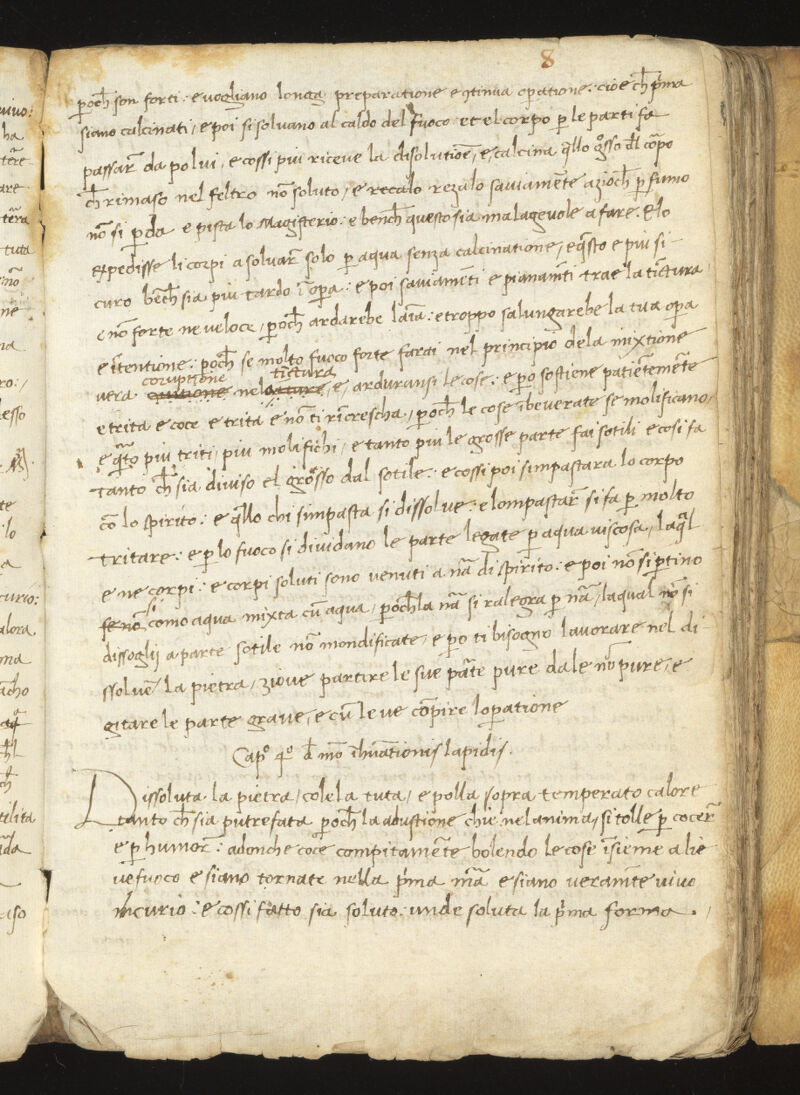 8
p̄och̄ son forti : e vogliano longa preparatione e ꝯtinua op̄atione : cioe ch̄ p̄ma
siano calcinati / e poi si soluano al caldo del fuoco et el corpo p̄ le parti fa
passar̄ da polui / e cossi piu riceue la disolutiōe / e calcina q̄llo gͦsso d̄l corpo
ch̄ rimaso nel feltro nō soluto / e rezalo sauiamēte azioch̄ p̄ fumo
nō si p̄da e pista lo Magisterio : e bench̄ questo sia malageuole a fare : E lo
expedisse li corpi a soluar̄ solo p̄ aqua senza calcinatione / e q̄sto e piu si-
curo bēch̄ sia piu tardo ī op̄a : e poi sauiamēti e pianamēti trae la tīctura
e nō forte ne veloce / p̄och̄ ardarebe laīa : e troppo salungarebe la tua opa
e ītentione : poch̄ se molto fuoco forte farai nel principio dela mixtione
vera coruptione nel tictura / e / arduransi le cose : e pero sostiene patiētemēte
e trita e coce e trita e nō ti rīcrescha / p̄och̄ le cose ībeuerate se molificano /
e q̄to piu triti / piu molifichi / e tanto piu le grosse parte fai sotili e cosi fa
tanto ch̄ sia diuiso el grosso dal sotile : e cossi poi simpastara lo corpo
cō lo spirito : e q̄llo chi simpasta si dissolue : e lompastar̄ si fa p̄ molto
tritare : e p̄ lo fuoco si diuidano le parte legate p̄ aqua viscosa / laq̄l
e ne corpi : e corpi soluti sono venuti a nā di spirito : e poi nō si p̄tino
se nō si como aqua mixta cū aqua / p̄och̄ la nā si ralegra p̄ nā / laqual nō si
dissoglij a parte sotile nō mondificate / e p̄o ti bisogno lauorare nel di
ssoluē la pietra / zioue partire le sue pāte pure dale nō pure / e
gitare le parte graue / e cū le ue cōpire lop̄atione
Capͦ qͦ d̄ mō īhuātionis lapidis .
Dissoluta la pietra / colela tuta / e polla sopra temperato calore
tanto ch̄ sia putrefata p̄och̄ la adustione che nel anima / si tolle p̄ cocer̄
e p̄ humor̄ : adonche coce compitamēte bolendo le cose īsieme a lie
ue fuoco e siano tornate nella p̄ma mā e siano veramēte viuo
m̄curio : e cossi fatto sia soluto : unde soluta la p̄ma forma .